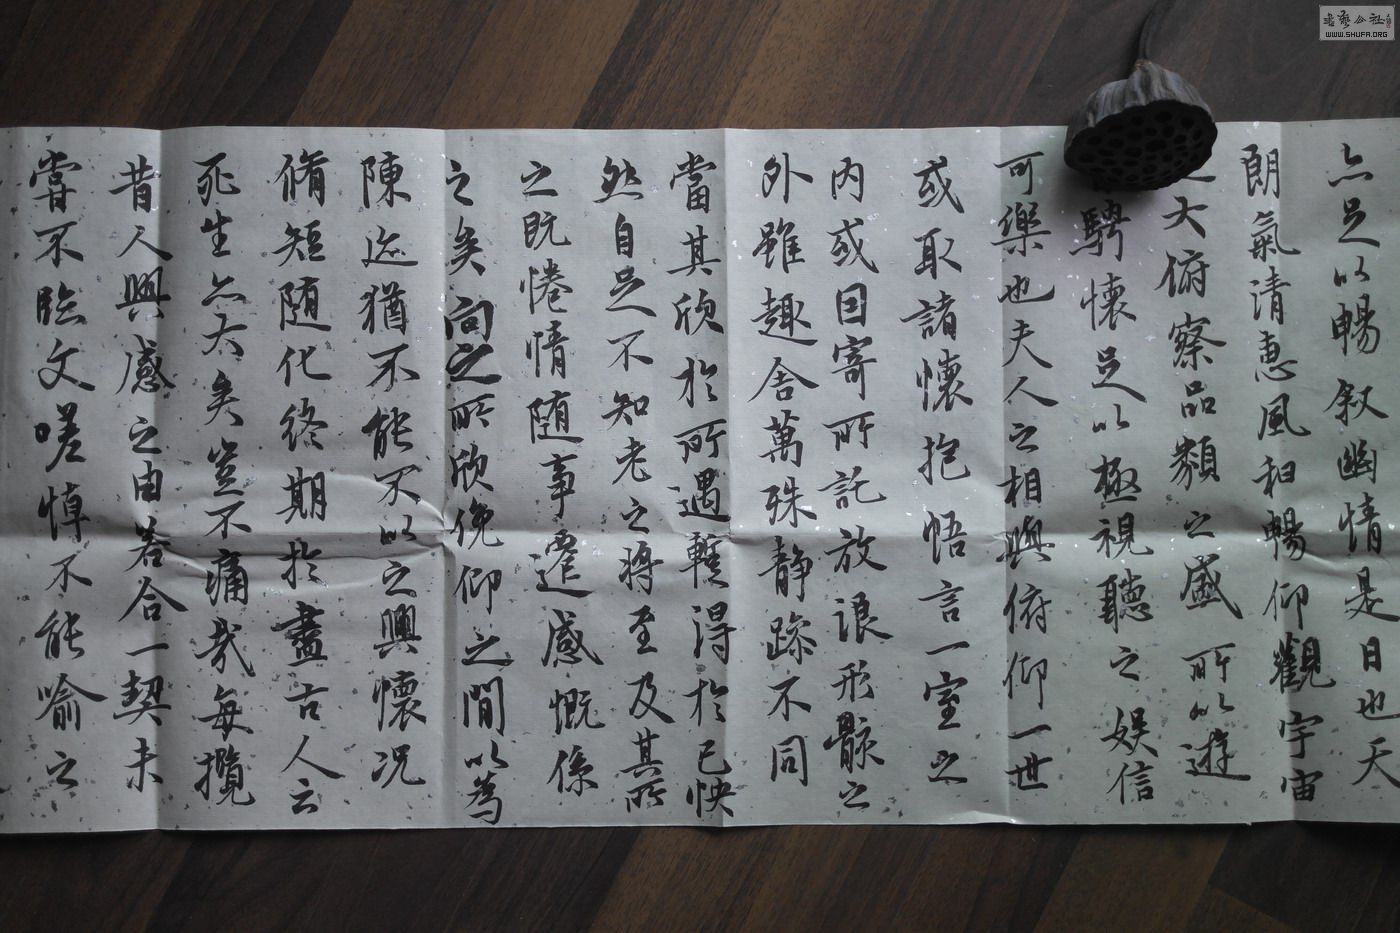 亦足以暢敘幽情是日也天
朗氣清惠風和暢仰觀宇宙
大俯察品類之盛所以遊
騁懷足以極視聽之娛信
可樂也夫人之相與俯仰一世
或取諸懷抱悟言一室之
內或因寄所託放浪形骸之
外雖趣舍萬殊靜躁不同
當其欣於所遇蹔得於己怏
然自足不知老之將至及其所
之既惓情隨事遷感慨係
之矣向之所欣俛仰之閒以為
陳迹猶不能不以之興懷況
脩短隨化終期於盡古人云
死生亦大矣豈不痛哉每攬
昔人興感之由若合一契未
嘗不臨文嗟悼不能喻之
WWW.SHUFA.ORG